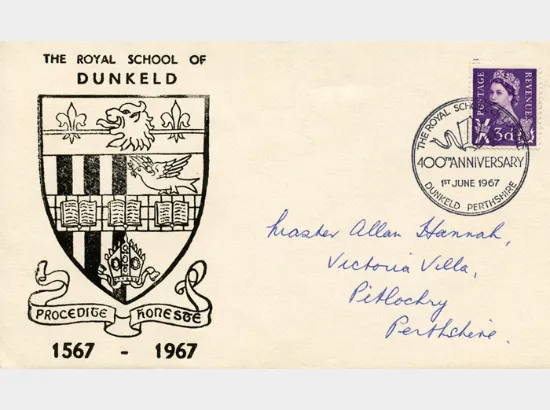 THE ROYAL SCHOOL OF
DUNKELD
PROCEDITE HONESTE
1567 - 1967
POSTAGE
REVENUE
3d
THE ROYAL SCH
400TH ANNIVERSARY
1ST JUNE 1967
DUNKELD PERTHSHIRE
Master Allan Hannah,
Victoria Villa,
Pitlochry
Perthshire.